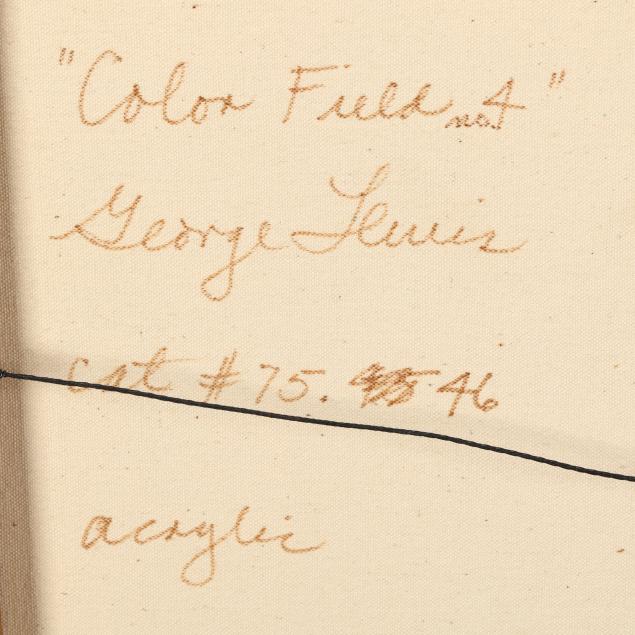 "Color Field no. 4"
George Lewis
cat # 75. 46
acrylic